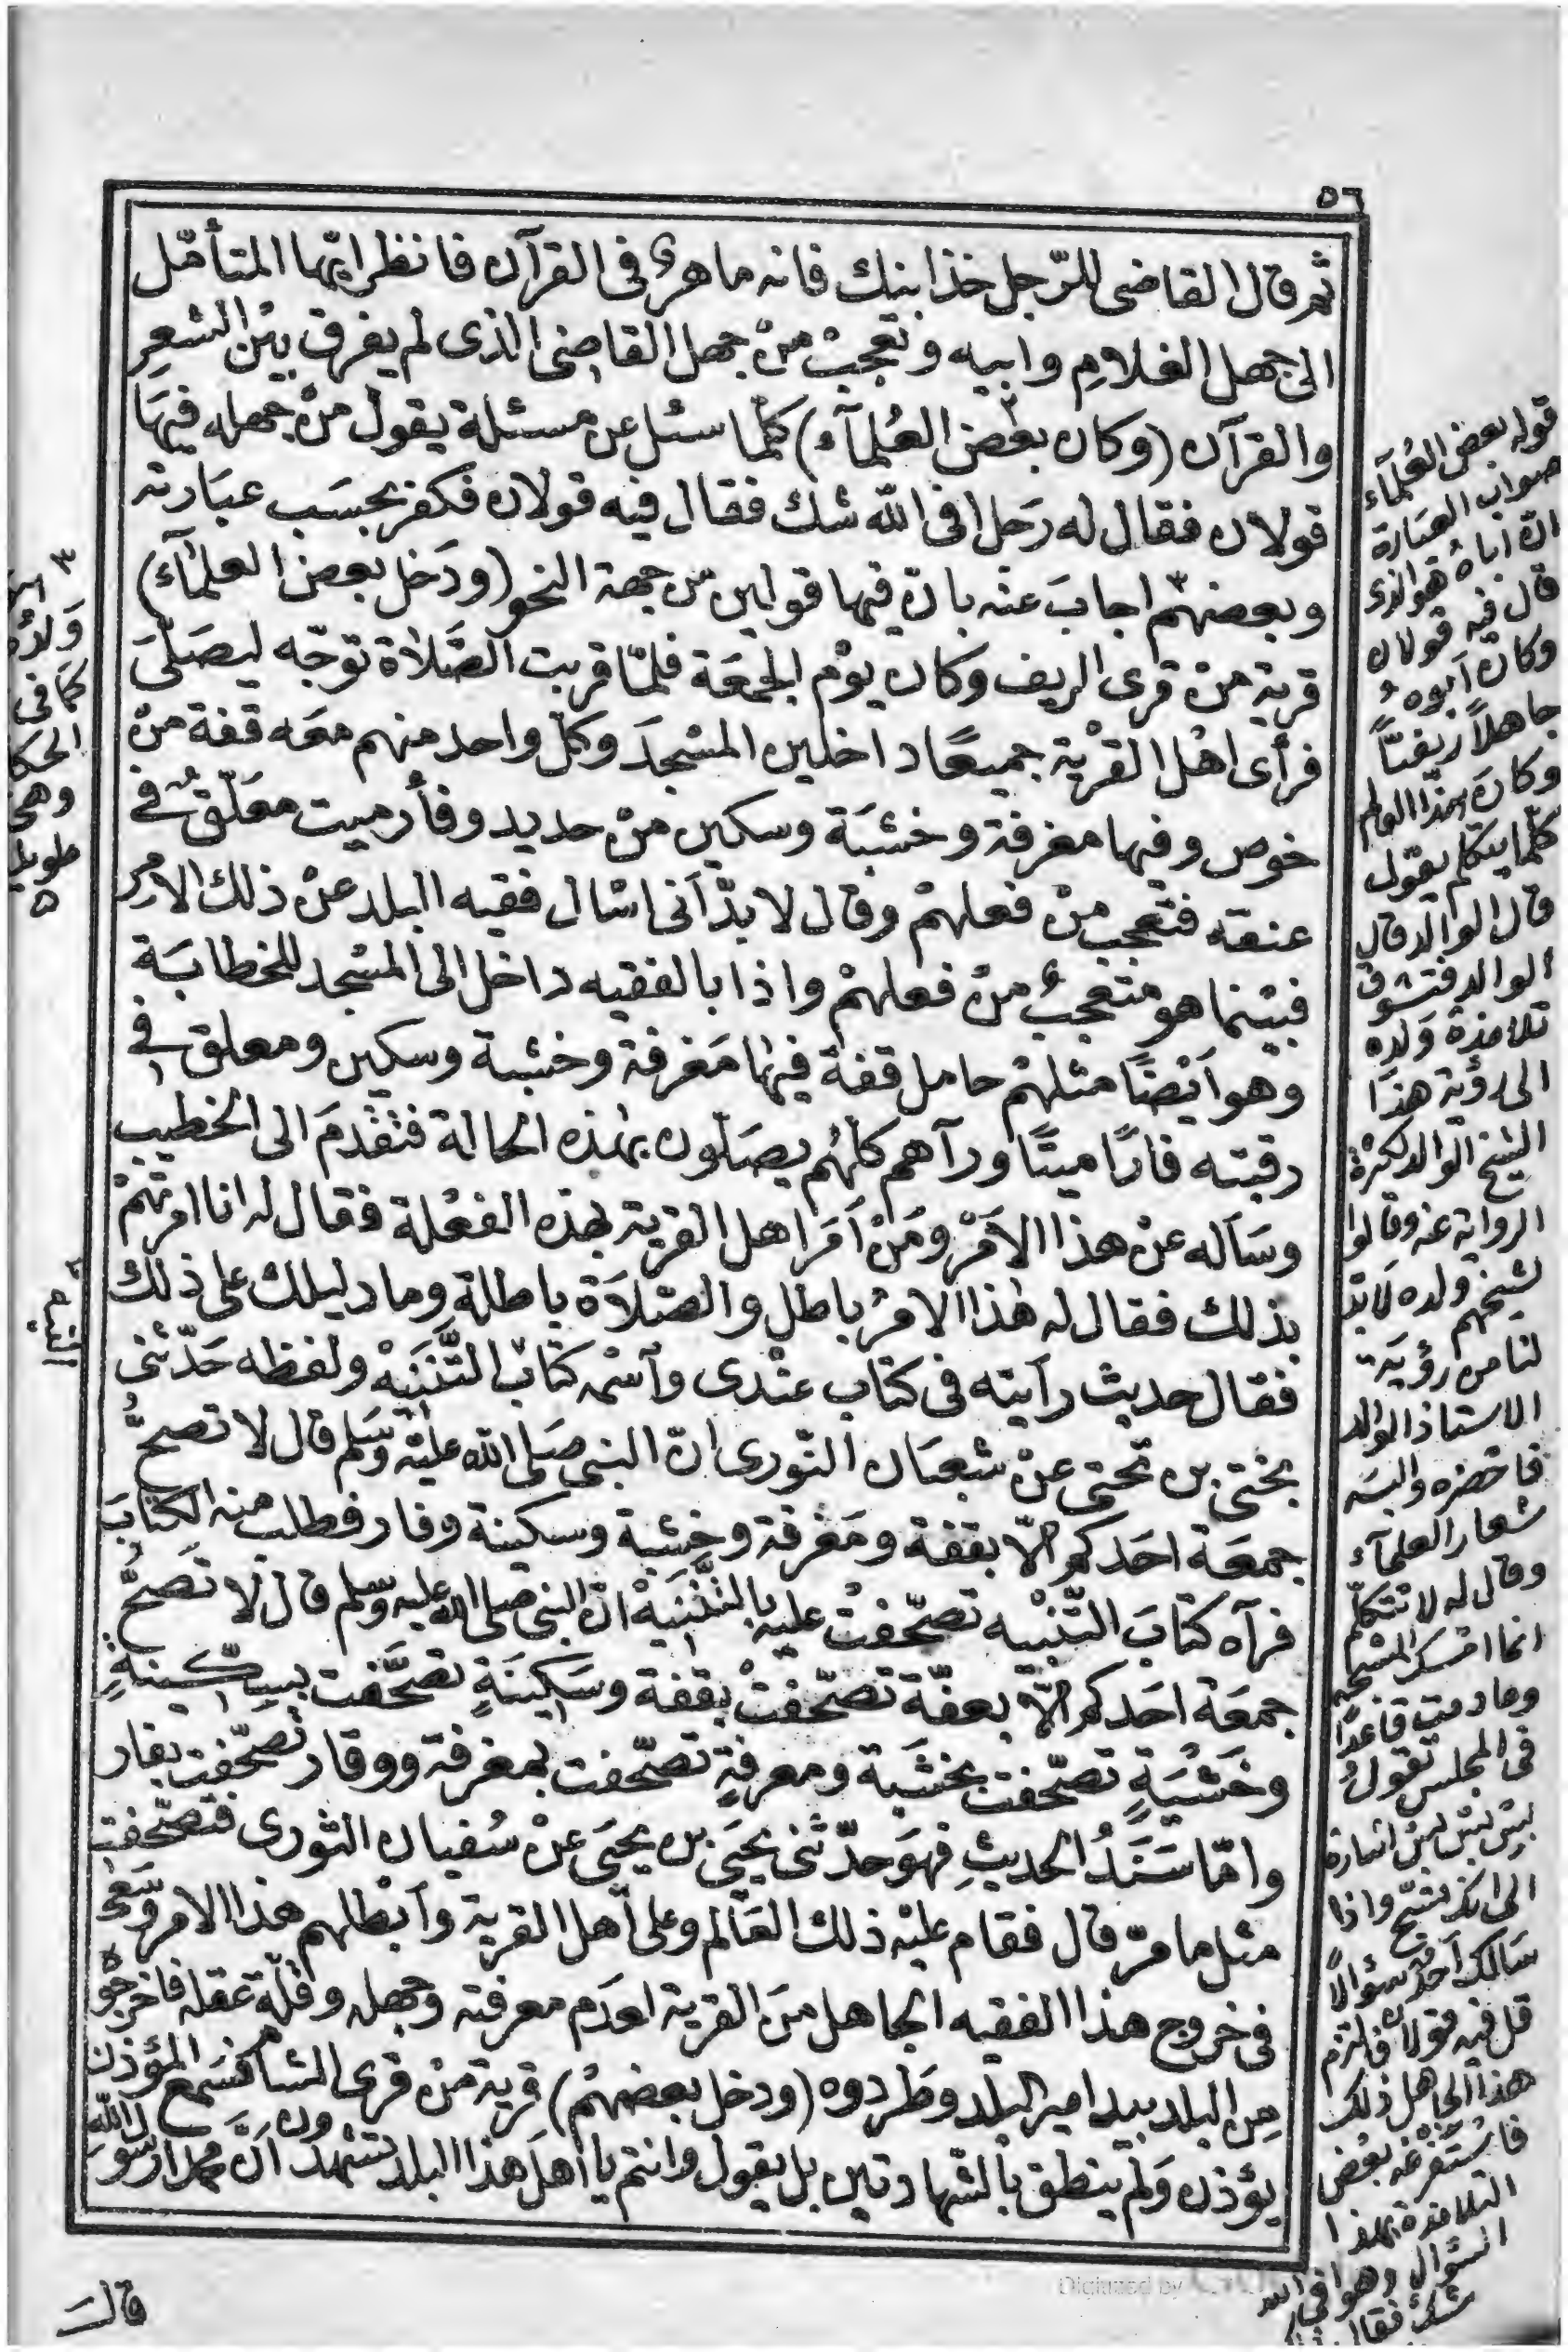 ٥٦
ثم قال القاضى للرّجل خذ ابنك فانه ماهرٌ فى القرآن فانظر ايّها المتأمّل
الى جهل الغلامِ وابيه وتعجبْ منْ جهل القاضى الذى لم يفرق بيْن الشعرِ
والقرآن (وكان بعْض العُلمآء) كلّما سئل عن مسئلة يقول منْ جهله فيهَا
قولان فقال له رَجل افى اللّه شك فقال فيه قولان فكفر بحسَب عبَارته
وبعضهمْ اجابَ عنْه بانّ فيها قولين من جهة النحو (ودَخل بعض العلمآء)
قرية منْ قرى الريف وكان يوْم الجمعَة فلمّا قربت الصَّلاة توجّه ليصَلّىَ
فرأى اهْل القرْية جميعًا داخلين المسْجدَ وكلّ واحد منهم معَه قفة منْ
خوص وفيها مغرفة وخشبَة وسكين منْ حديد وفأر ميت معَلّقٌ فى
عنقه فتعجب منْ فعلهمْ وقال لابدّ أنى اسْال فقيه البلد عنْ ذلك الامرِ
فبيْنما هو متعجبٌ منْ فعلهمْ واذا بالفقيه داخل الى المسْجد للخطابَة
وهو اَيْضًا مثلهمْ حامل قفة فيها مَغرفة وخشبة وسكين ومعلق فى
رقبته فارًا ميتًا ورآهم كلّهُم يصَلّون بهٰذه الحالة فتقدمَ الى الخطيب
وسَاَله عنْ هذا الاَمْر ومَنْ اَمَرَ اهل القرية بهٰذه الفعْلة فقال له انا امرتهمْ
بذلك فقال له هٰذا الامرُ باطل والصّلاَة باطلة وما دليلك على ذلك
فقال حديث رايته فى كتاب عنْدى واَسْمه كتابْ التَّنَنِيَهْ ولفظه حَدّثنى
بختى بن تحتى عنْ شعبَان التّورى انّ النبى صَلى اللّه عليْه وَسَلم قال لا تصحُّ
جمعَة احَدكم الّا بقفة ومَغْرفة وخشبة وسكينة وفار فطلب منه الكتابَ
فرآه كتابَ التَّنْبيه تصحّفتْ عليْه بالتَّنَنِيَهْ انّ النبى صلى اللّه عليه وسلم قال لا تَصَحُّ
جمعَة احَدكم الّا بعفّة تصحّفتْ بقفة وسَكينَةٍ تصَحَّفت بسِكّينةٍ
وخَشْيَةٍ تصحّفت بخشَبة ومعرفةٍ تصَحّفت بمغرفة ووقار تصحّفت بفار
وامّا سَنَدُ الحديثِ فهوَ حدّثنى يَحيَى بن يحيَى عنْ سُفيان الثورى فتصحّفت
مثل ما مرّ قال فقام عليْه ذلك العَالم وعلى أهل القرية وأبْطلهم هذا الامر وسَعى
فى خروج هذا الفقيه الجاهل منَ القرية لعدَم معرفته وجهله وقلّة عقله فاخرجوه
من البلد بيد امير البلد وطَردوه (ودخل بعضهُمْ) قرية منْ قرى الشام فسَمع المؤذن
يؤذن وَلمْ ينطق بالشّهادتين بل يقول وانتم يا أهلَ هذا البلد تشهدون أنّ محمدا رسول اللّه
قال
قوله بعض العُلمآء
صواب العبَارة
انّ اباهُ هو الذى
قال فيه قولان
وكان اَبوهُ
جاهلاً ريفيّاً
وكانَ هذا العالم
كلّما يتكلم يقول
قال الوالد قال
الوالد فتشوق
تلامذة وَلده
الى رؤية هذا
الشيخ الوالد لكثرة
الرواية عنه وقالوا
لشيخهم ولده لابدّ
لنا من رؤيَة
الاستاذ الوالد
فاحضره والبسَه
شعار العلمآء
وقال له لا تتكلّم
انما امْسك المسْبحَة
ومادمت قاعدًا
فى المجلس تقولُ
بس بس بس اشارة
الى انك تسبّح واذا
سَالك اَحدٌ سؤالاً
قل فيه قولان فالتزم
هذا الجاهل ذلك
فاسْتفزّه بعْض
التلامذة بهٰذا
السّؤال وهو افى اللّه
شكٌّ فقال
٣
وَلدُه
كمَا فى
وهى
طويلة
٥
٢